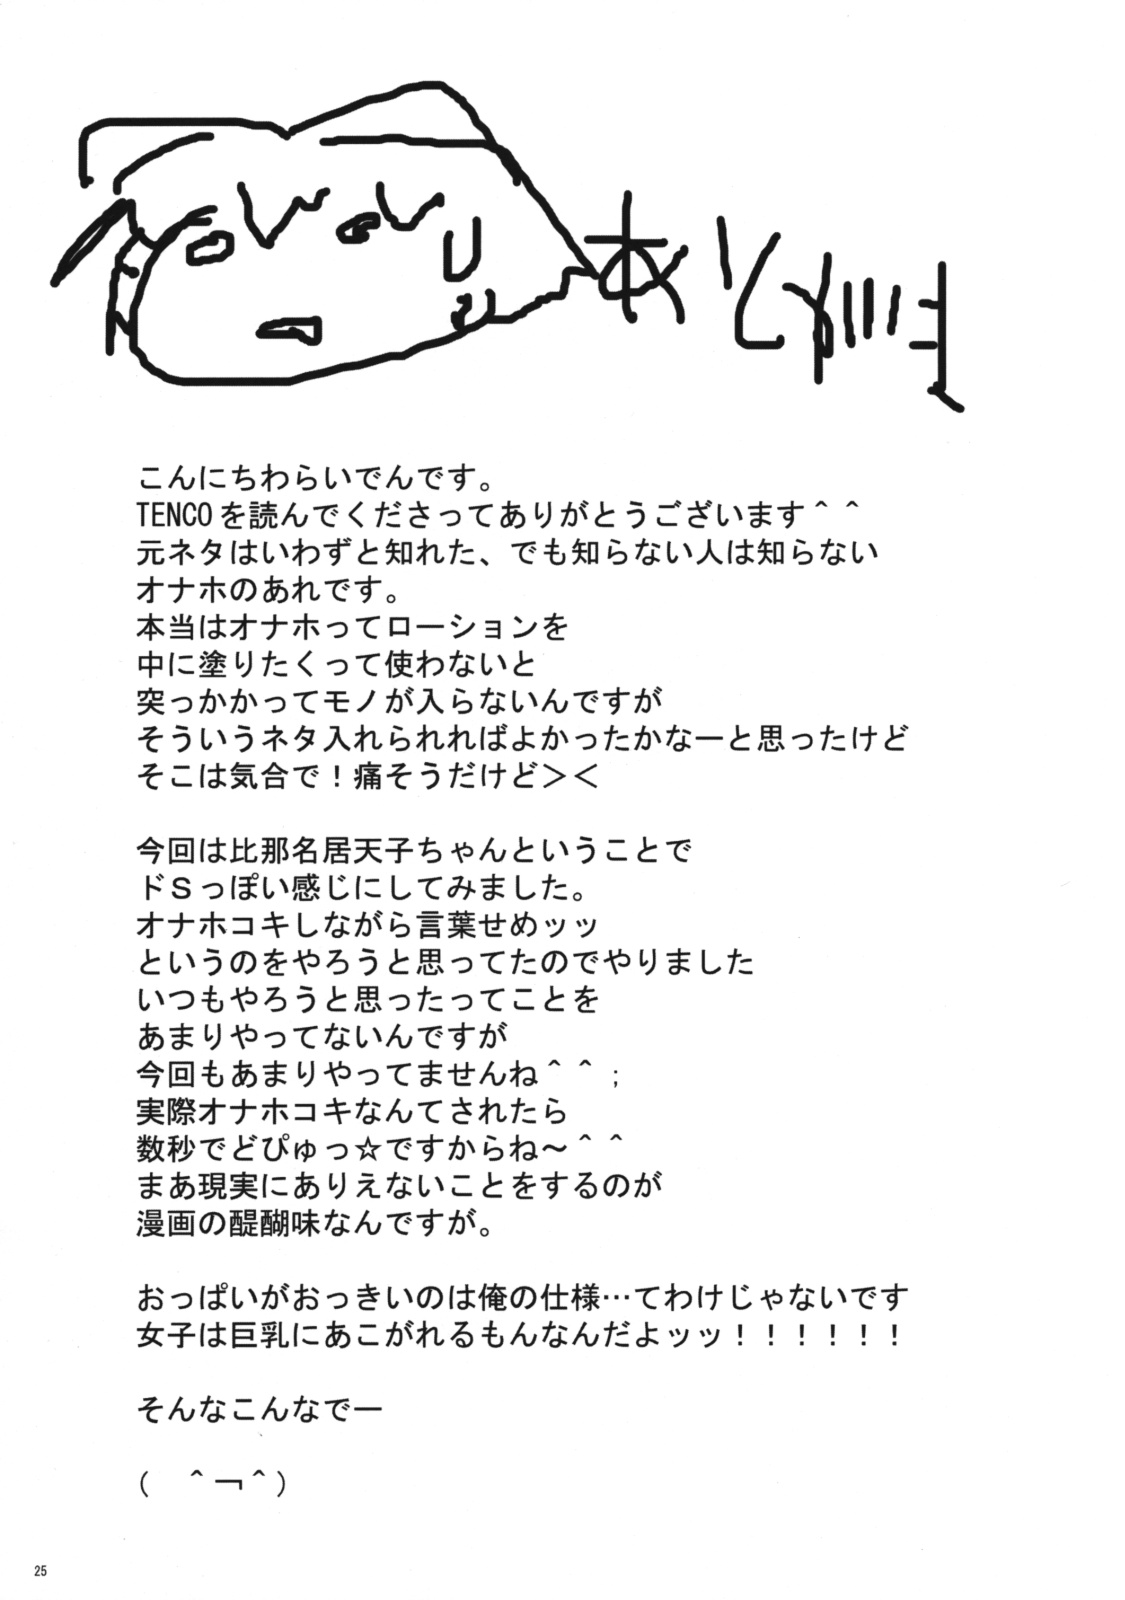 あとがき
こんにちわらいでんです。
TENCOを読んでくださってありがとうございます＾＾
元ネタはいわずと知れた、でも知らない人は知らない
オナホのあれです。
本当はオナホってローションを
中に塗りたくって使わないと
突っかかってモノが入らないんですが
そういうネタ入れられればよかったかなーと思ったけど
そこは気合で！痛そうだけど＞＜
今回は比那名居天子ちゃんということで
ドSっぽい感じにしてみました。
オナホコキしながら言葉せめッッ
というのをやろうと思ってたのでやりました
いつもやろうと思ったってことを
あまりやってないんですが
今回もあまりやってませんね＾＾；
実際オナホコキなんてされたら
数秒でどぴゅっ☆ですからね～＾＾
まあ現実にありえないことをするのが
漫画の醍醐味なんですが。
おっぱいがおっきいのは俺の仕様…てわけじゃないです
女子は巨乳にあこがれるもんなんだよッッ！！！！！！
そんなこんなでー
(　＾￢＾)
25